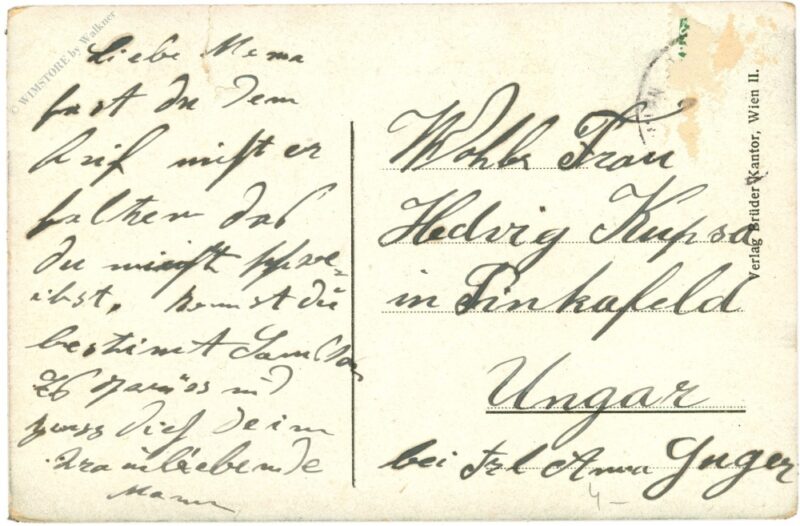 © WIMSTORE by Walkner
Liebe Mema
hast du dem
brif nicht er
halten das
du nicht schre-
ibst, komst du
bestimt Samstag
und
Dich dein
liebende
Mann
Wohlb Frau
Hedvig Kupsa
in Pinkafeld
Ungar
bei Frl Anna Guger
4-
Verlag Brüder Kantor, Wien II.